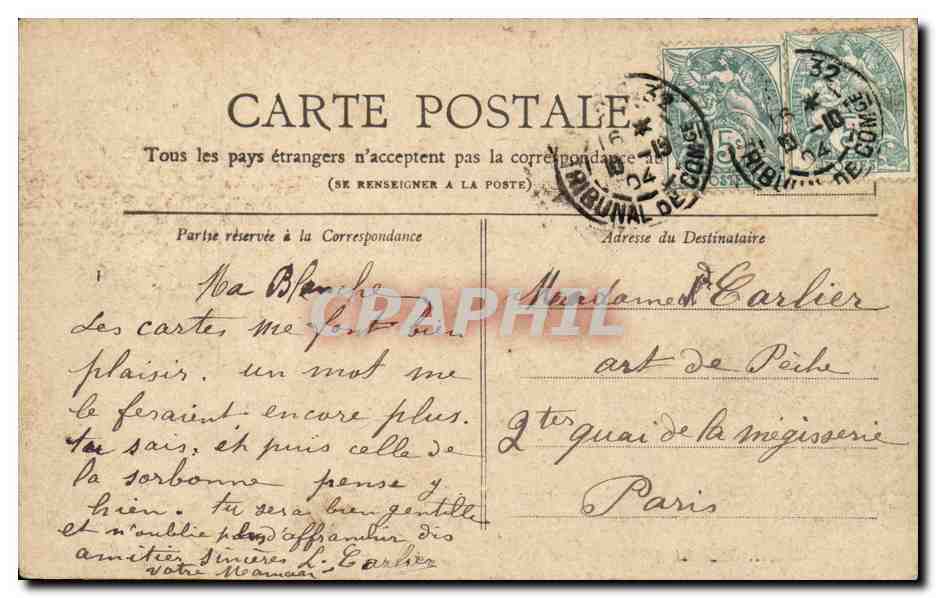 CARTE POSTALE
Tous les pays étrangers n'acceptent pas la correspondance au
(SE RENSEIGNER A LA POSTE)
Partie réservée à la Correspondance
Ma Blanche
Les cartes me font bien
plaisir. un mot me
le feraient encore plus.
tu sais, et puis celle de
la sorbonne pense y
bien. tu sera bien gentille
et n'oublie pas d'affranchir dis
amitier sincères L. Carlier
votre Maman
Adresse du Destinataire
Madame Carlier
art de Pêche
2ter quai de la mégisserie
Paris
TRIBUNAL DE COMCE
32
16
*
18
1-13
04
TRIBUNAL DE COMCE
32
16
*
18
1-13
04
5
CPAPHIL